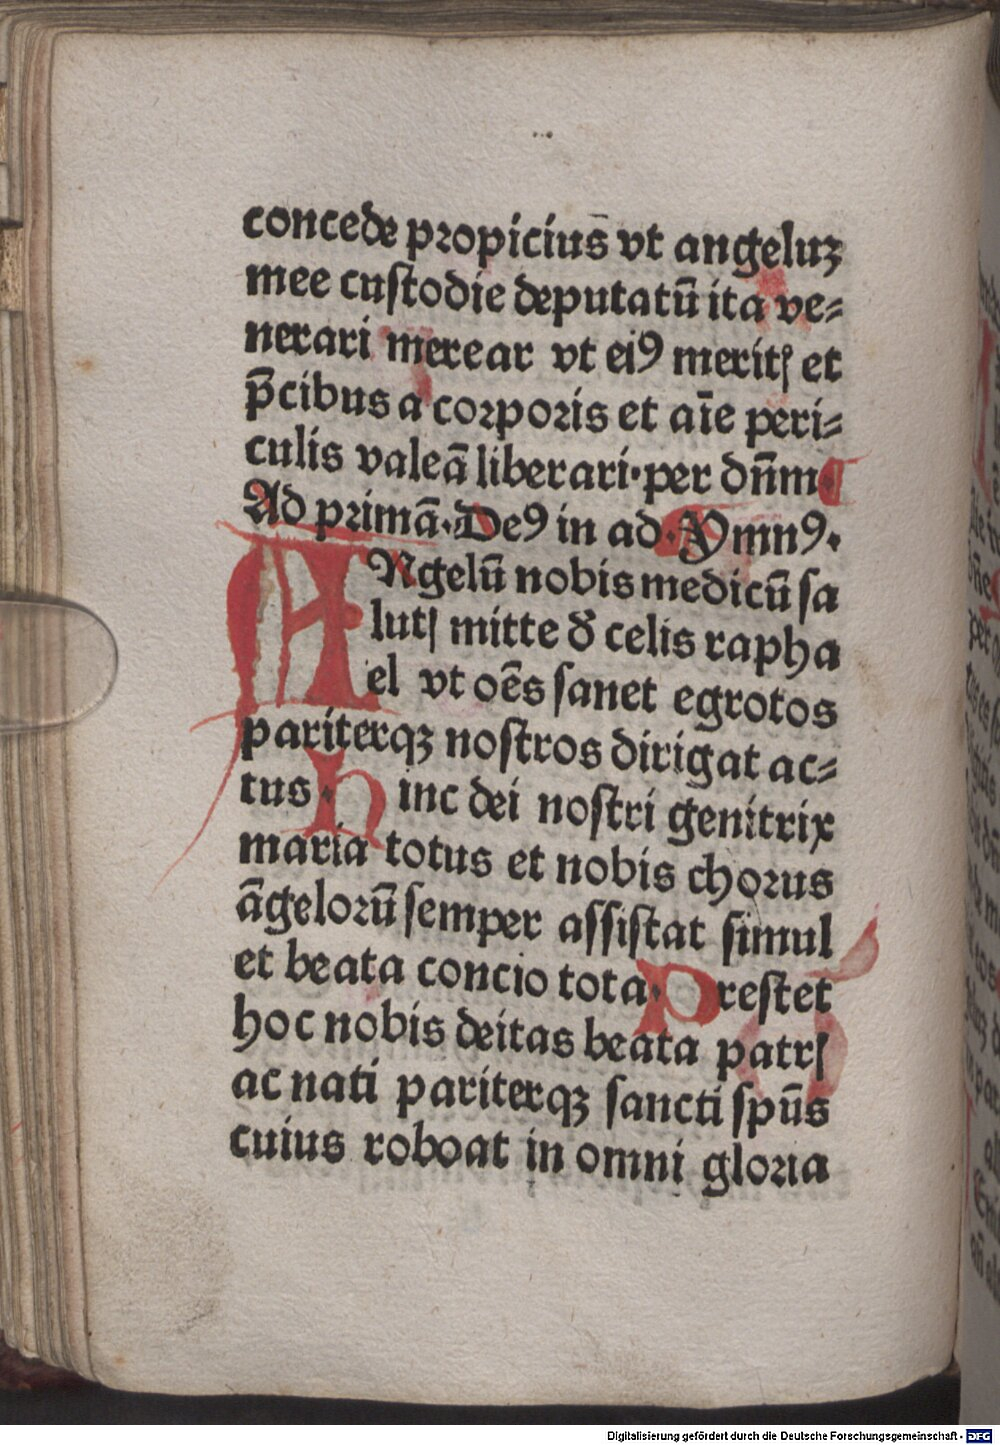 concede propiciu&#772;s vt angeluꝫ
mee custodie deputatū ita ve⸗
nerari merear vt eiꝰ meritꝭ et
p̄cibus a corporis et aīe peri⸗
culis valeā liberari·per dn̄m·
Ad primā·Deꝰ in ad·Ymnꝰ·
ANgelū nobis medicū sa
lutꝭ mitte d̕ celis rapha
el vt oēs sanet egrotos
pariterqꝫ nostros dirigat ac⸗
tus· hinc dei nostri genitrix
maria totus et nobis chorus
āgelorū semper assistat simul
et beata concio tota· Prestet
hoc nobis deitas beata patrꝭ
ac nati pariterqꝫ sancti spūs
cuius roboat in omni gloria
Digitalisierung gefördert durch die Deutsche Forschungsgemeinschaft - DFG